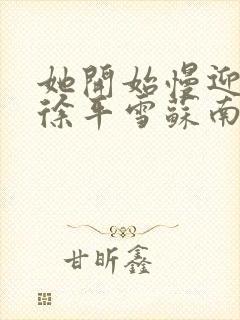 她開始慢迎
徐平雪蘇南
甘昕鑫